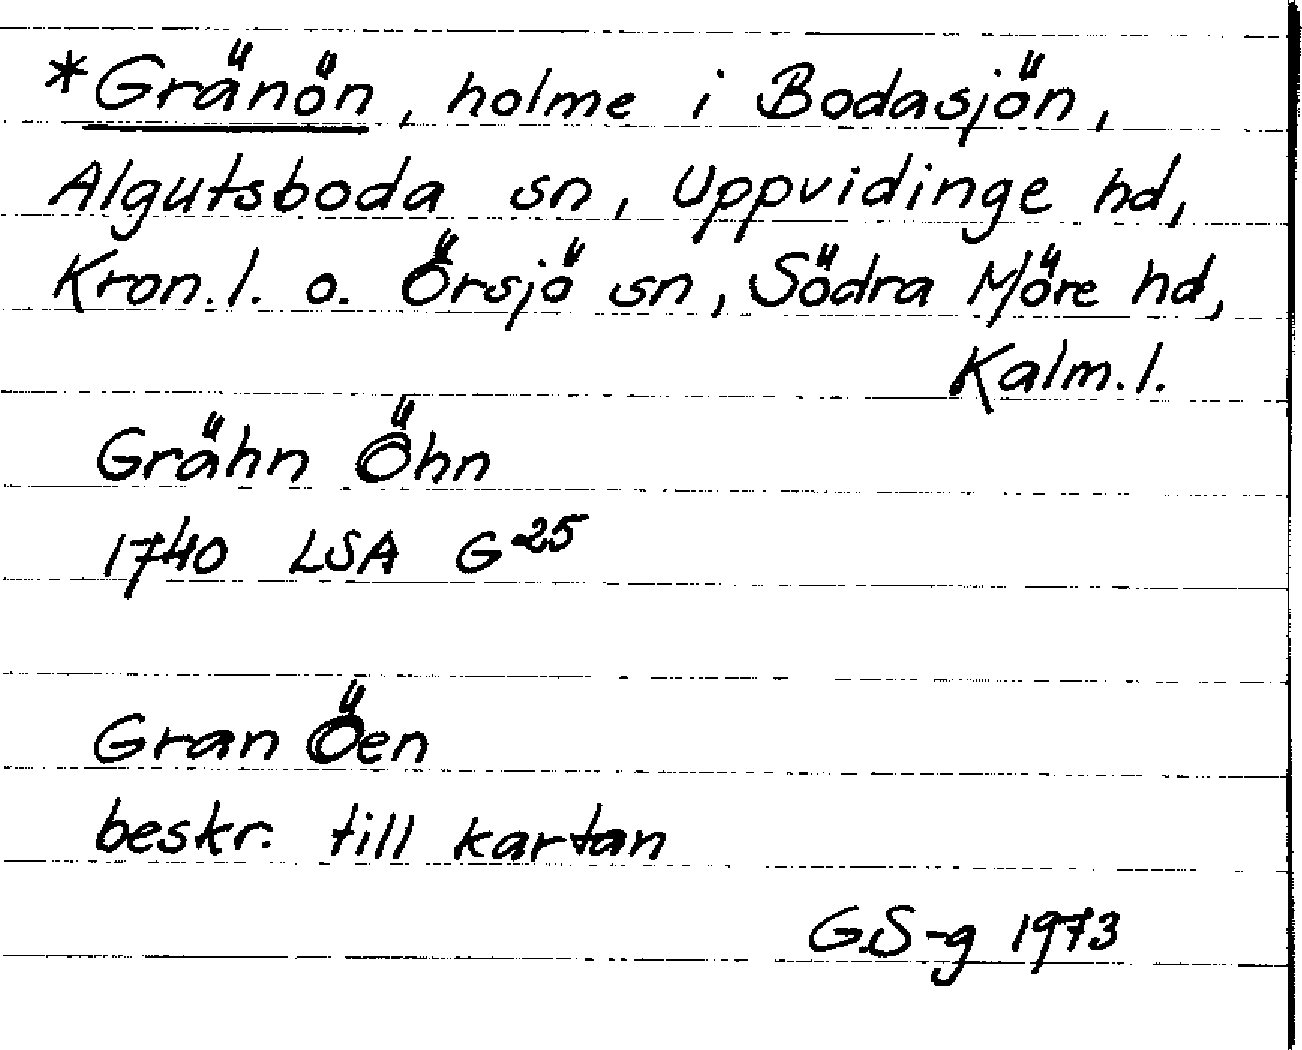 *Gränön, holme i Bodasjön,
Algutsboda sn, Uppvidinge hd,
Kron.l. o. Örsjö sn, Södra Möre hd,
Kalm.l.
Grähn Öhn
1740 LSA G-25
Gran Öen
beskr. till kartan
G.S-g 1973